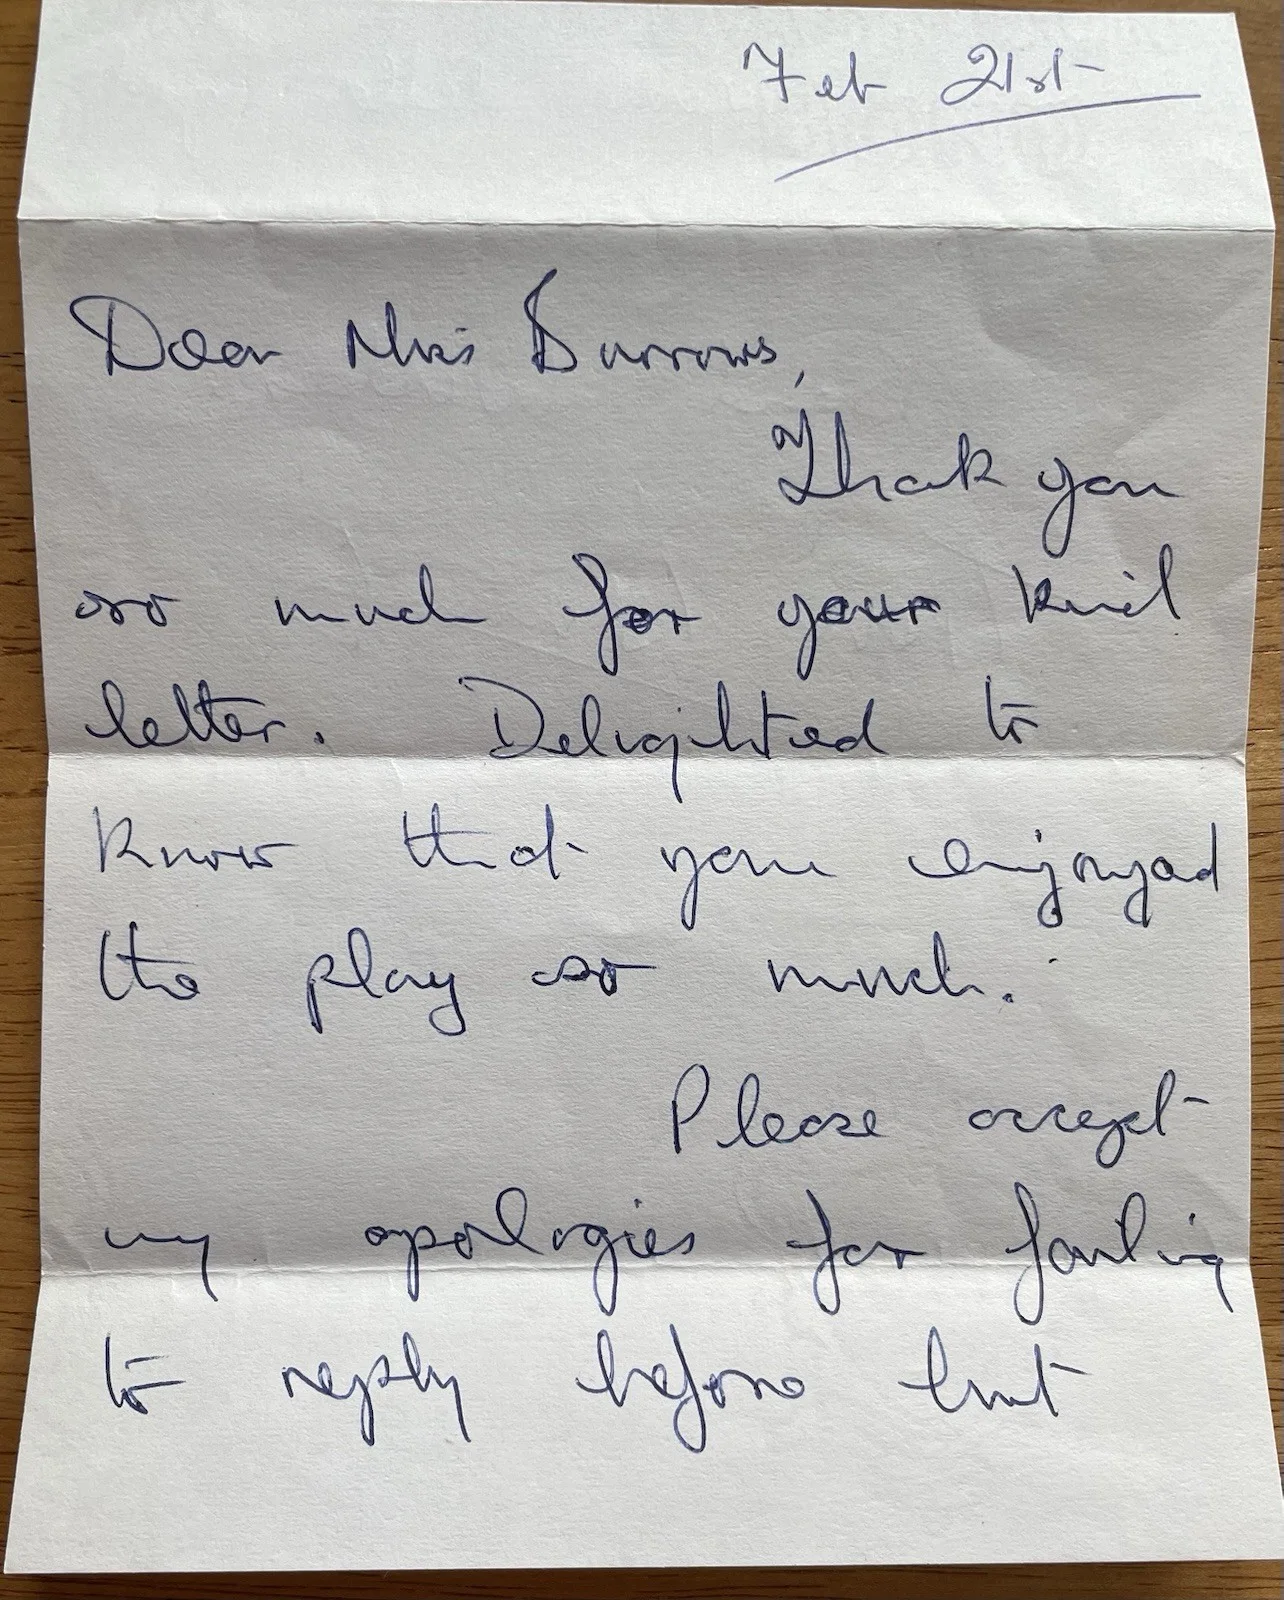 Feb 21st
Dear Miss Burrows,
Thank you
so much for your kind
letter. Delighted to
know that you enjoyed
the play so much.
Please accept
my apologies for failing
to reply before but